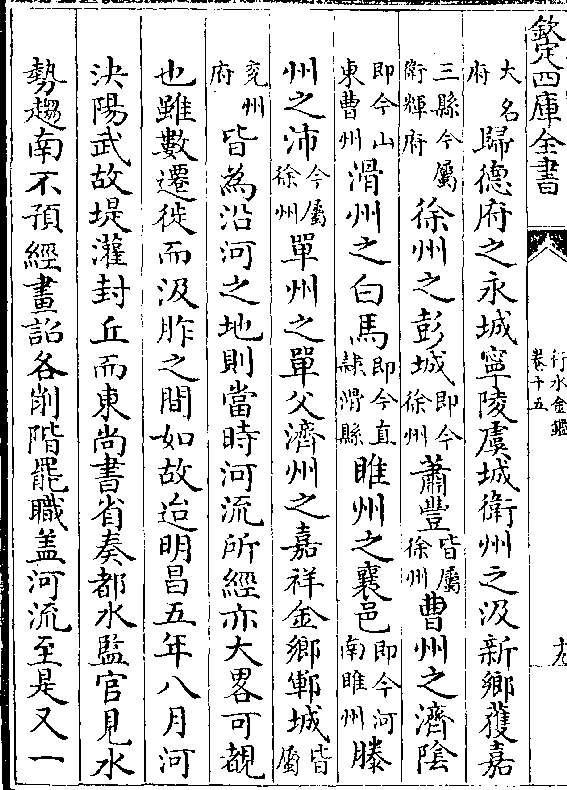 欽定四庫全書
行水金鑑
卷十五
十九
大名府歸德府之永城寧陵虞城衛州之汲新鄉獲嘉
三縣今屬衛輝府徐州之彭城即今徐州蕭豐皆屬徐州曹州之濟陰
即今山東曹州滑州之白馬即今直隸滑縣睢州之襄邑即今河南睢州滕
州之沛今屬徐州單州之單父濟州之嘉祥金鄉鄆城皆屬
兗州府皆為沿河之地則當時河流所經亦大畧可覩
也雖數遷徙而汲胙之間如故迨明昌五年八月河
決陽武故堤灌封丘而東尚書省奏都水監官見水
勢趨南不預經畫詔各削階罷職蓋河流至是又一